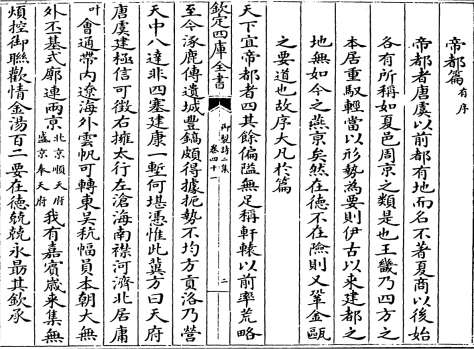 帝都篇有序
帝都者唐虞以前都有地而名不著夏商以後始
各有所稱如夏邑周京之類是也王畿乃四方之
本居重馭輕當以形勢為要則伊古以來建都之
地無如今之燕京矣然在德不在險則又鞏金甌
之要道也故序大凡於篇
欽定四庫全書
御製詩二集
卷四十一
二
天下宜帝都者四其餘偏隘無足稱軒轅以前率荒略
至今涿鹿傳遺城豐鎬頗得據扼勢不均方貢洛乃營
天中八達非四塞建康一塹何堪憑惟此冀方曰天府
唐虞建極信可徵右擁太行左滄海南襟河濟北居庸
叶會通帶内遼海外雲帆可轉東吳秔幅員本朝大無
外丕基式廓連兩京北京順天府盛京奉天府我有嘉賓歲來集無
煩控御聯歡情金湯百二要在德兢兢永勖其欽承